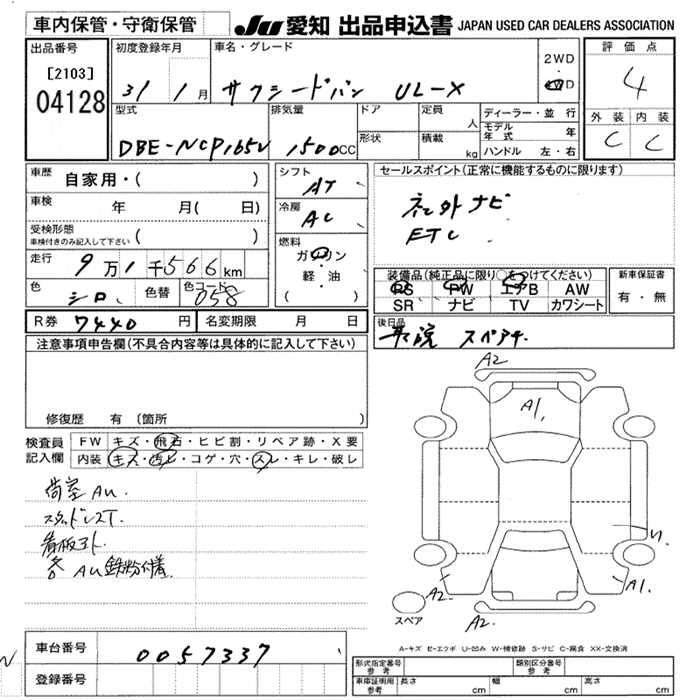 車内保管・守衛保管 JU 愛知 出品申込書 JAPAN USED CAR DEALERS ASSOCIATION
出品番号 [2103] 04128
初度登録年月 31 1月
車名・グレード サクシードバン UL-X
2WD・4WD
評価点 4
外装 C 内装 C
型式 DBE-NCP165V
排気量 1500CC
ドア
形状
定員 人
積載 kg
ディーラー・並行
モデル年式 年
ハンドル 左・右
車歴 自家用・( )
車検 年 月( 日)
受検形態 車検付きのみ記入して下さい ( )
走行 9万1千566km
色 シロ 色替 色コード 058
シフト AT
冷房 AC
燃料 ガソリン 軽・油 ( )
セールスポイント(正常に機能するものに限ります)
社外ナビ
ETC
装備品(純正品に限り○をつけてください)
PS PW エアB AW
SR ナビ TV カワシート
新車保証書 有・無
R券 7440円 名変期限 月 日
後日品 取説 スペアキー
注意事項申告欄(不具合内容等は具体的に記入して下さい)
修復歴 有 (箇所 )
検査員記入欄
FW キズ・飛石・ヒビ割・リペア跡・X要
内装 キズ・汚レ・コゲ・穴・スレ・キレ・破レ
荷室AU.
スタッドレスT.
看板跡
各AU鉄粉付着.
A2
A1,
A2
A2.
A1.
スペア
A-キズ E-エクボ U-凹み W-補修跡 S-サビ C-腐食 XX-交換済
車台番号 0057337
登録番号
形式指定番号 参考
類別区分番号 参考
車庫証明用 参考 長さ cm 幅 cm 高さ cm